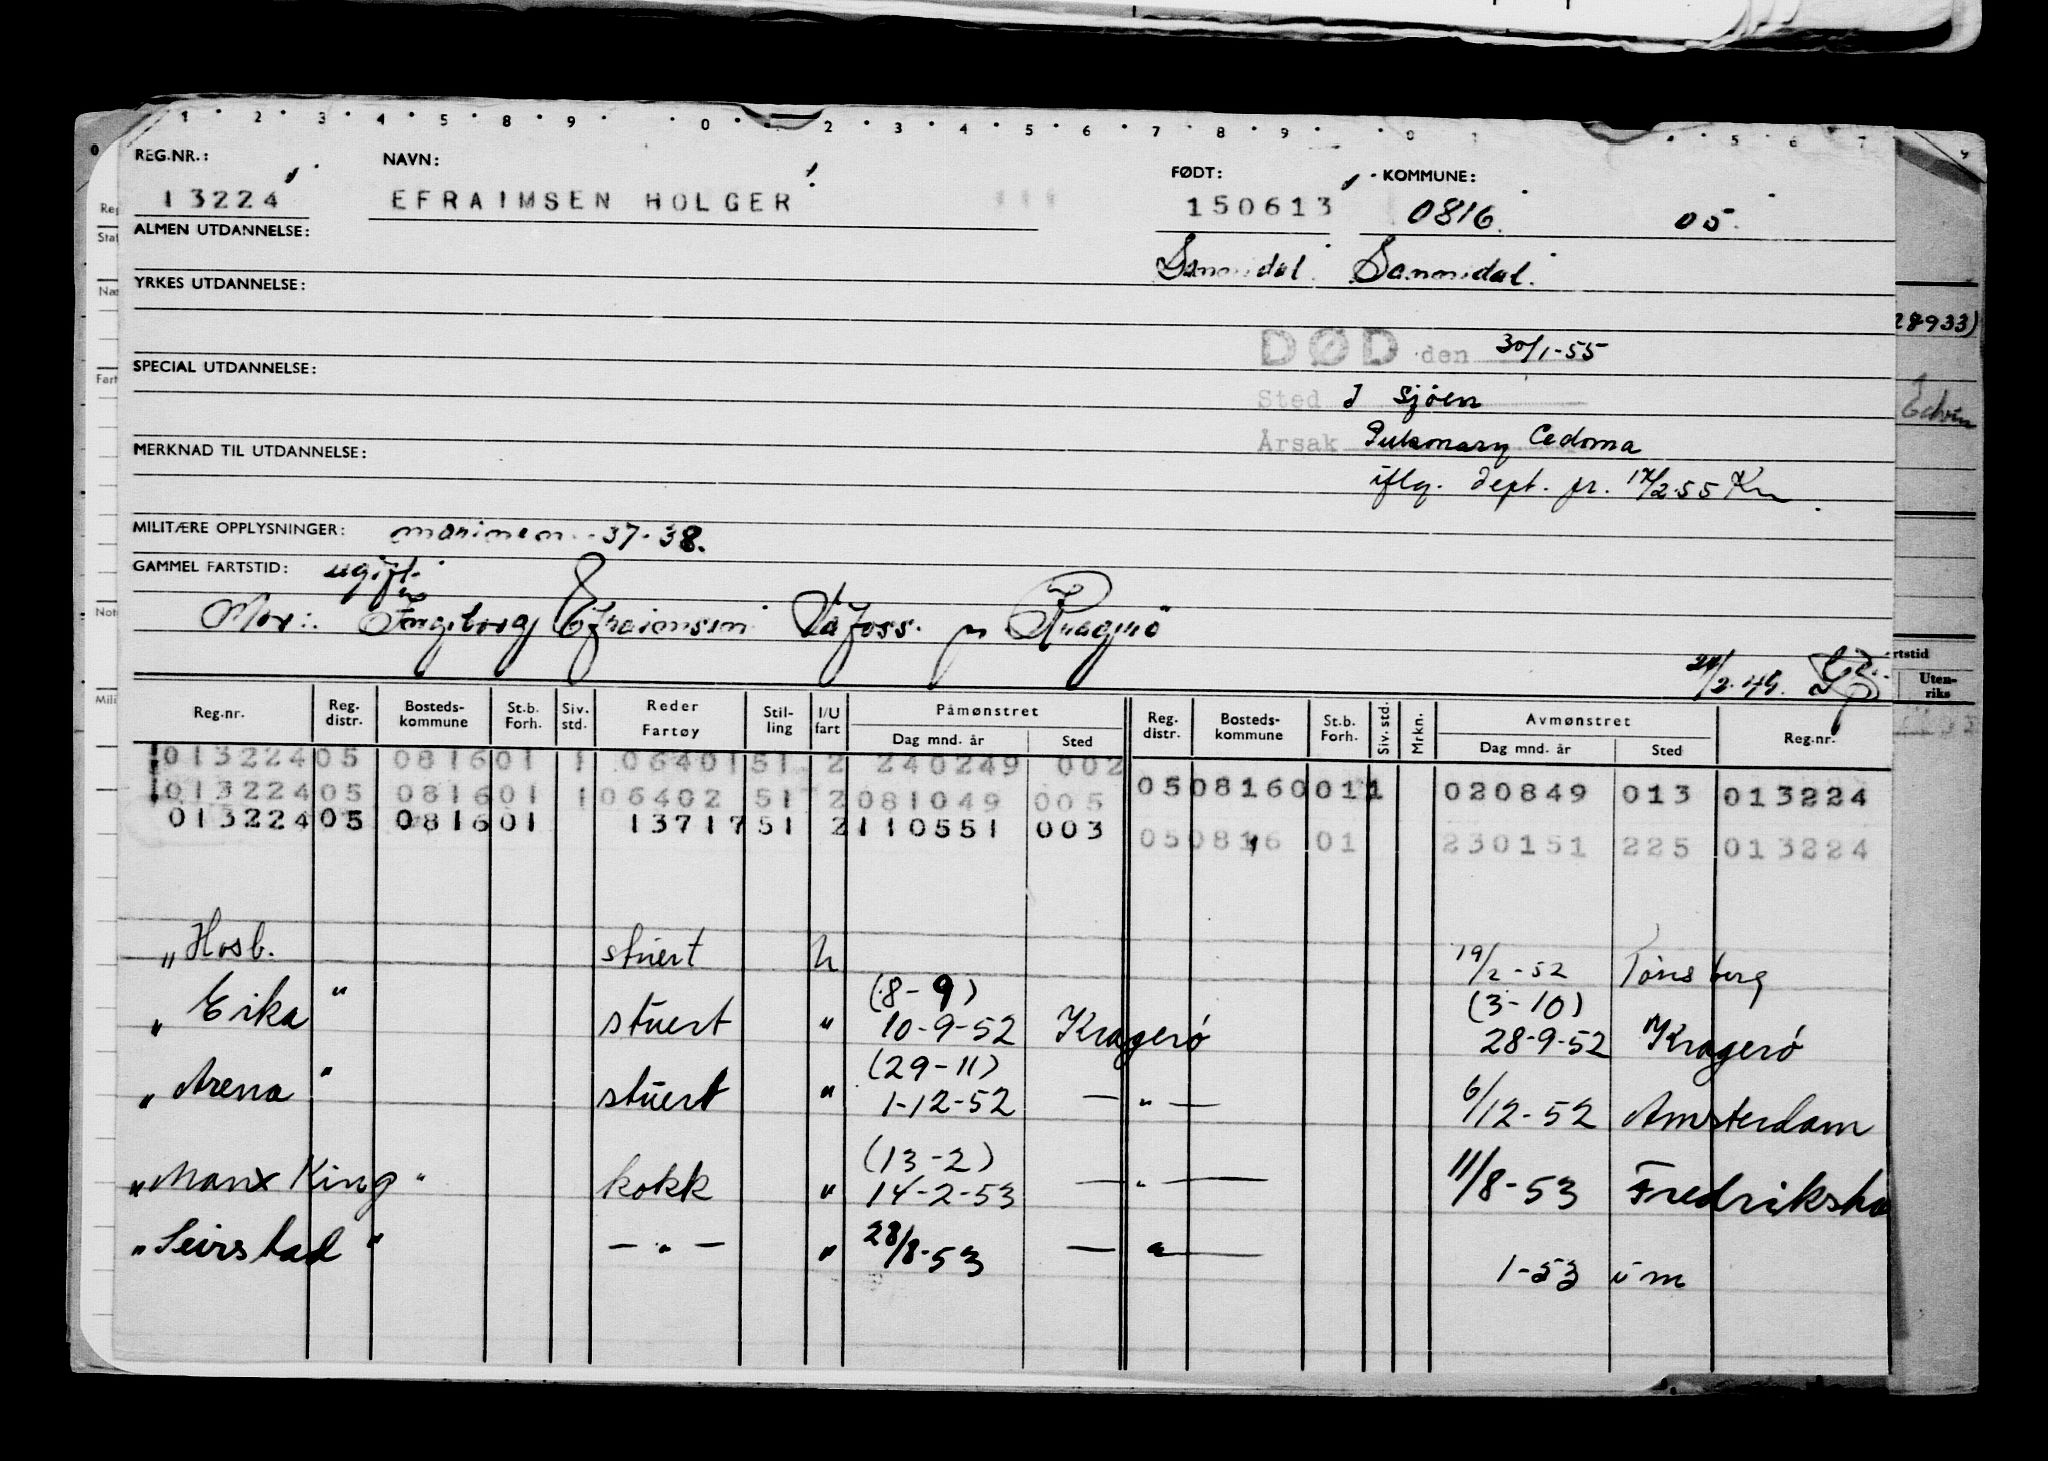 REG.NR.: NAVN: FØDT: KOMMUNE:
13224 EFRAIMSEN HOLGER 150613 0816 05
ALMEN UTDANNELSE:
Sannidal Sannidal
YRKES UTDANNELSE:
28933)
DØD den 30/1-55
SPECIAL UTDANNELSE:
Sted I sjøen
Edvin
Årsak Pulmonary Oedema
MERKNAD TIL UTDANNELSE:
iflg. dept. fr. 2.55
MILITÆRE OPPLYSNINGER: marinen 37-38.
GAMMEL FARTSTID: ugift.
Mor: Ingeborg Efraimsen Kragerø
Reg.nr. Reg. distr. Bosteds-kommune St.b. Forh. Siv. std. Reder Fartøy Stil-ling I/U fart Påmønstret Dag mnd. år Sted Reg. distr. Bosteds-kommune St.b. Forh. Siv. std. Mrkn. Avmønstret Dag mnd. år Sted Reg.nr.
rtstid
Uten-riks
013224 05 0816 01 1 06401 51 2 240249 002
05 0816 0 01 1 020849 013 013224
013224 05 0816 01 1 06402 51 2 081049 005
013224 05 0816 01 13717 51 2 110551 003
05 0816 01 230151 225 013224
„Hosb. stuert 19/2-52 Tønsberg
(8-9) (3-10)
„Erika" stuert " 10-9-52 Kragerø 28-9-52 Kragerø
(29-11)
„Arena" stuert " 1-12-52 — " — 6/12-52 Amsterdam
(13-2)
„Manx King" kokk " 14-2-53 — " — 11/8-53 Fredriksha
„Seirstad" — " — " 28/8-53 — " — 1-53 um